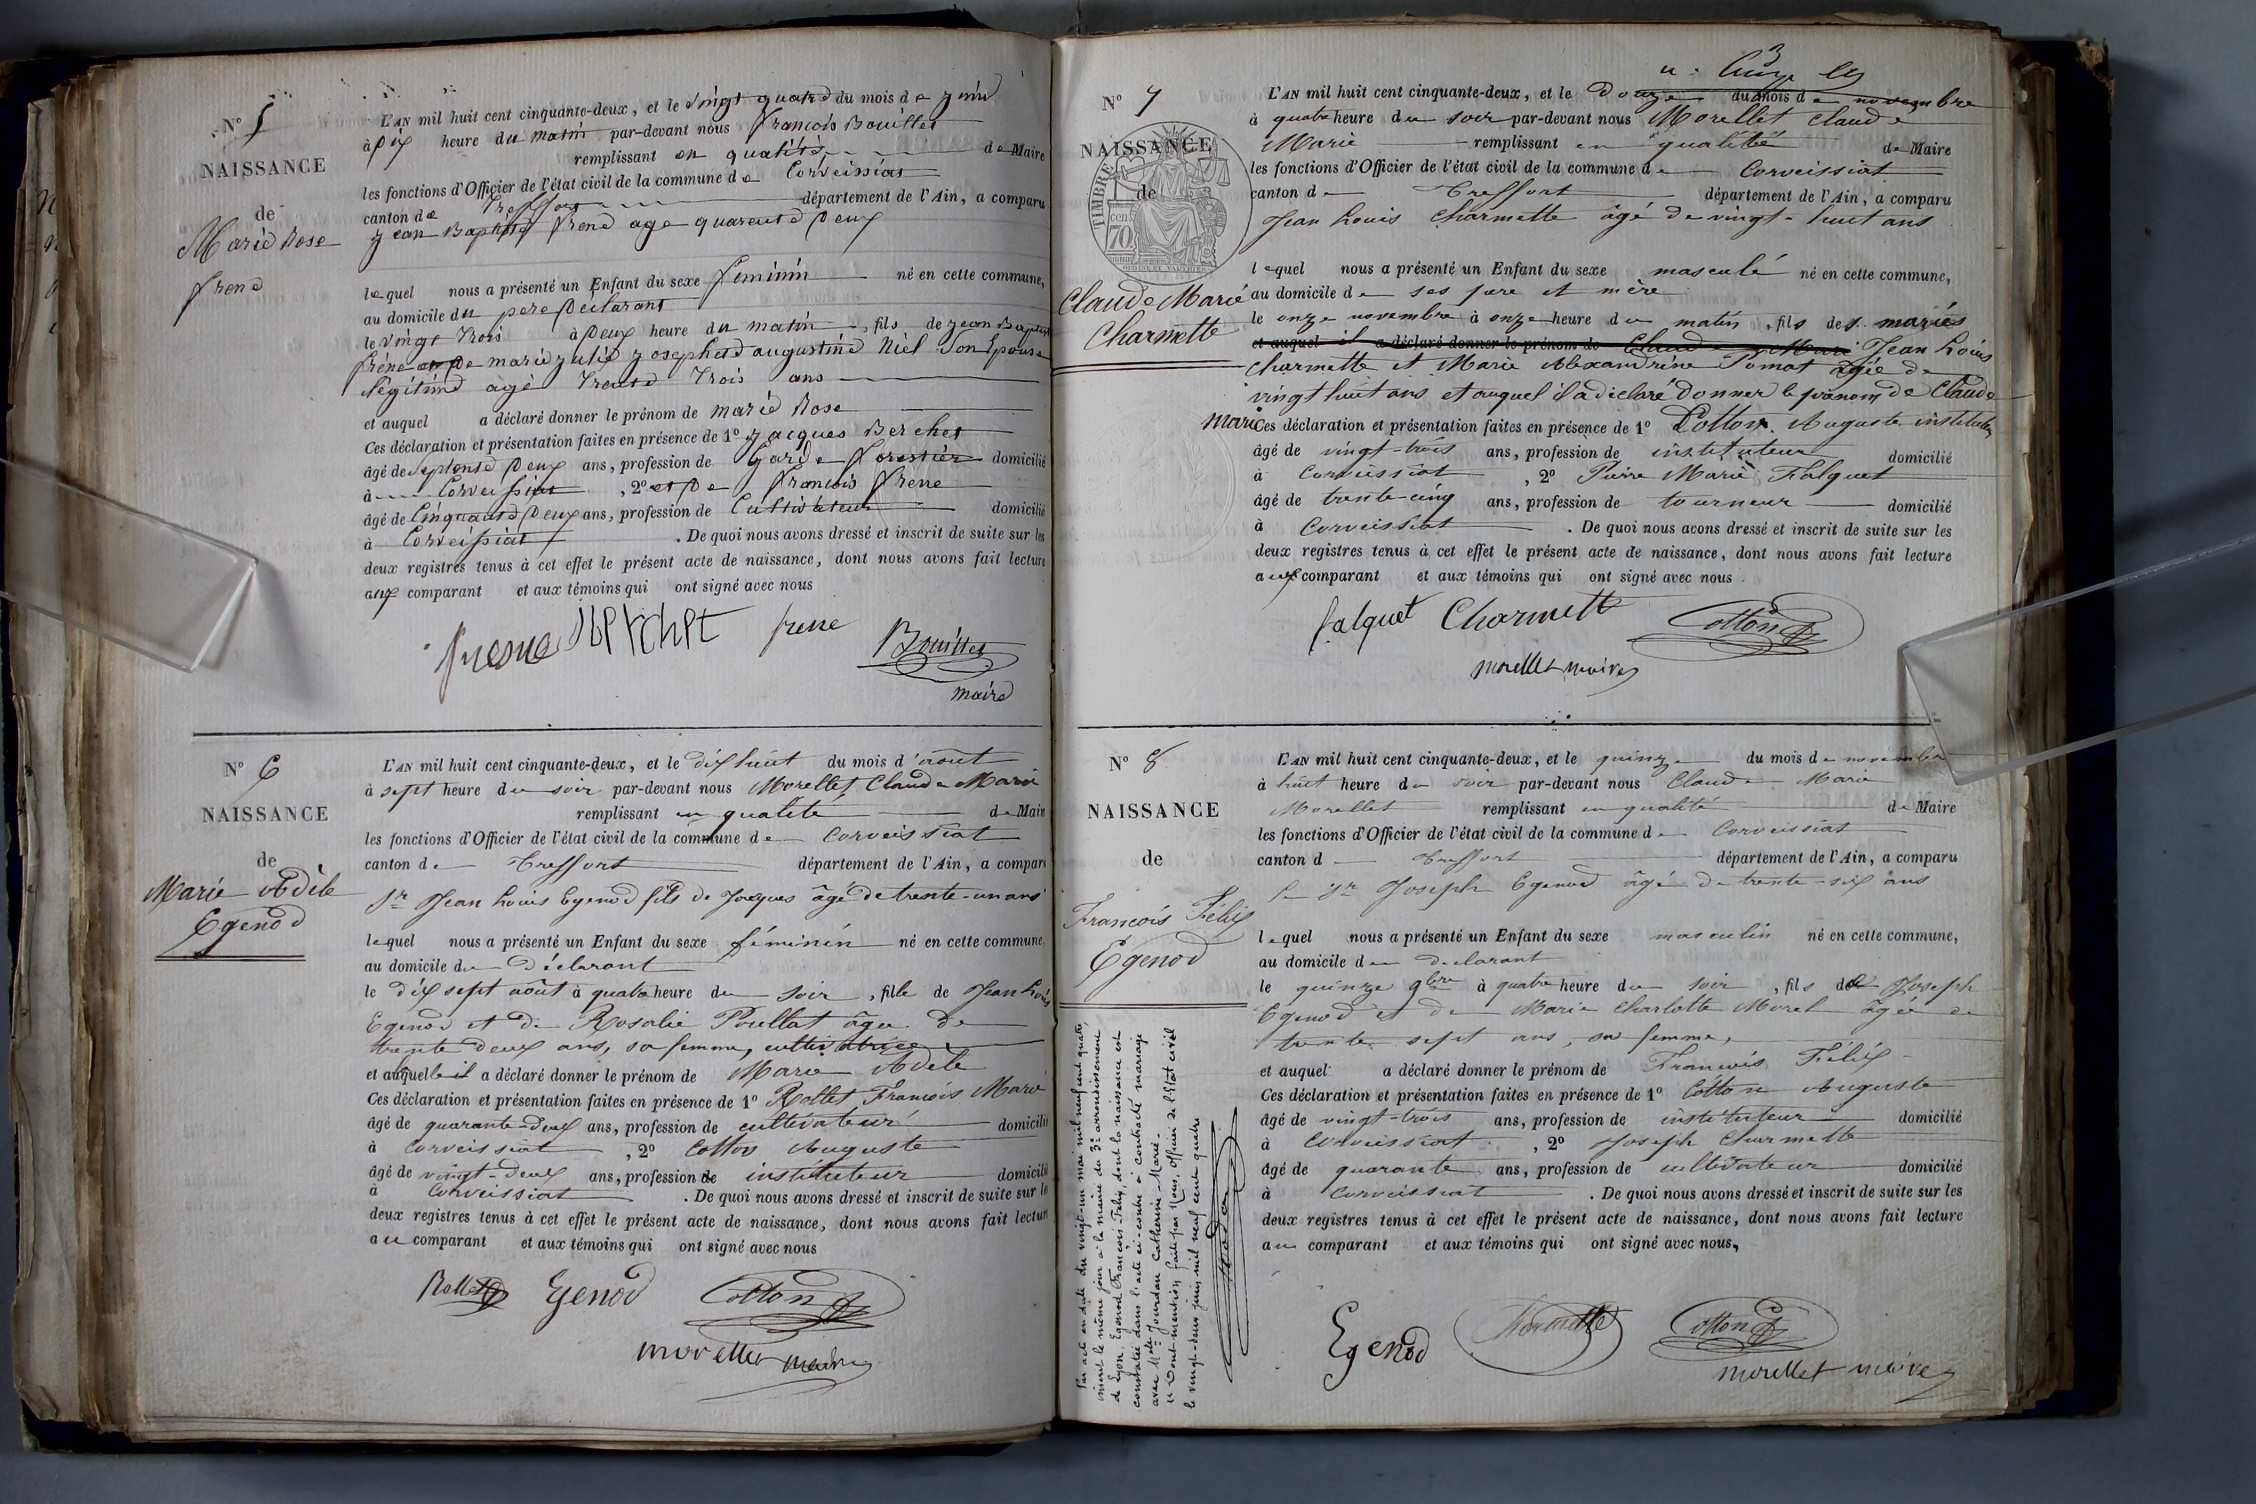 N° 5
NAISSANCE
de
Marie Rose
frene
L'AN mil huit cent cinquante-deux, et le vingt quatre du mois de juin
à six heure du matin par-devant nous françois Bouillet
remplissant en qualité de Maire
les fonctions d'Officier de l'état civil de la commune de Corveissiat
canton de Treffort département de l'Ain, a comparu
jean Baptiste frene age quarente deux
lequel nous a présenté un Enfant du sexe feminin né en cette commune,
au domicile du pere declarant
le vingt trois à deux heure du matin, fils de jean Baptiste
frene et de marie julie josephete augustine Niel son Epouse
légitime agé trente trois ans
et auquel a déclaré donner le prénom de marie Rose
Ces déclaration et présentation faites en présence de 1° jacques Berchet
âgé de septente deux ans, profession de Garde forestier domicilié
à Corveissiat, 2° et de francois frene
âgé de Cinquante deux ans, profession de Cultivateur domicilié
à Corveissiat. De quoi nous avons dressé et inscrit de suite sur les
deux registres tenus à cet effet le présent acte de naissance, dont nous avons fait lecture
aux comparant et aux témoins qui ont signé avec nous
fresne Berchet frene Bouillet
maire
N° 6
NAISSANCE
de
Marie Adèle
Egenod
L'AN mil huit cent cinquante-deux, et le dix huit du mois d'août
à sept heure du soir par-devant nous Morellet Claude Marie
remplissant en qualité de Maire
les fonctions d'Officier de l'état civil de la commune de Corveissiat
canton de Treffort département de l'Ain, a comparu
Sr Jean Louis Egenod fils de Jacques âgé de trente-un ans
lequel nous a présenté un Enfant du sexe féminin né en cette commune,
au domicile du Déclarant
le dix sept août à quatre heure du soir, fille de Jean Louis
Egenod et de Rosalie Poullat âgée de
trente deux ans, sa femme, cultivatrice
et auquelle il a déclaré donner le prénom de Marie Adèle
Ces déclaration et présentation faites en présence de 1° Rollet François Marie
âgé de quarante-deux ans, profession de cultivateur domicilié
à Corveissiat, 2° Cotton Auguste
âgé de vingt-deux ans, profession de instituteur domicilié
à Corveissiat. De quoi nous avons dressé et inscrit de suite sur les
deux registres tenus à cet effet le présent acte de naissance, dont nous avons fait lecture
au comparant et aux témoins qui ont signé avec nous
Rollet Egenod Cotton
morellet maire
N° 7
NAISSANCE
de
TIMBRE
70
Claude Marie
Charmette
L'AN mil huit cent cinquante-deux, et le Douze du mois de novembre
à quatre heure du soir par-devant nous Morellet Claude
Marie remplissant en qualité de Maire
les fonctions d'Officier de l'état civil de la commune de Corveissiat
canton de Treffort département de l'Ain, a comparu
Jean Louis Charmette âgé de vingt-huit ans
lequel nous a présenté un Enfant du sexe masculé né en cette commune,
au domicile de ses père et mère
le onze novembre à onze heure du matin, fils des mariés
et auquel il a déclaré donner le prénom de Claude Marie Jean Louis
Charmette et Marie Alexandrine Pomat agée de
vingt huit ans et auquel il a déclaré donner le prénom de Claude
Marie Ces déclaration et présentation faites en présence de 1° Cotton Auguste instituteur
âgé de vingt-trois ans, profession de instituteur domicilié
à Corveissiat, 2° Pierre Marie Falquet
âgé de trente cinq ans, profession de tourneur domicilié
à Corveissiat. De quoi nous avons dressé et inscrit de suite sur les
deux registres tenus à cet effet le présent acte de naissance, dont nous avons fait lecture
aux comparant et aux témoins qui ont signé avec nous
falquet Charmette Cotton
morellet maire
N° 8
NAISSANCE
de
François Félix
Egenod
L'AN mil huit cent cinquante-deux, et le quinze du mois de novembre
à huit heure du soir par-devant nous Claude Marie
Morellet remplissant en qualité de Maire
les fonctions d'Officier de l'état civil de la commune de Corveissiat
canton d Treffort département de l'Ain, a comparu
le Sr Joseph Egenod âgé de trente-six ans
lequel nous a présenté un Enfant du sexe masculin né en cette commune,
au domicile du declarant
le quinze 9bre à quatre heure du soir, fils de Joseph
Egenod et de Marie Charlotte Morel âgée de
trente sept ans, sa femme,
et auquel a déclaré donner le prénom de François Félix
Ces déclaration et présentation faites en présence de 1° Cotton Auguste
âgé de vingt-trois ans, profession de instituteur domicilié
à Corveissiat, 2° Joseph Charmette
âgé de quarante ans, profession de cultivateur domicilié
à Corveissiat. De quoi nous avons dressé et inscrit de suite sur les
deux registres tenus à cet effet le présent acte de naissance, dont nous avons fait lecture
au comparant et aux témoins qui ont signé avec nous,
Egenod Charmette Cotton
morellet maire
Par acte en date du vingt-un mai mil neuf cent quatre,
inscrit le même jour à la mairie du 3e arrondissement
de Lyon, Egenod François-Félix, dont la naissance est
constatée dans l'acte ci-contre a contracté mariage
avec Mlle Jourdan Catherine Marie.
Dont mention faite par Nous, Officier de l'Etat civil
le vingt-deux juin mil neuf cent quatre